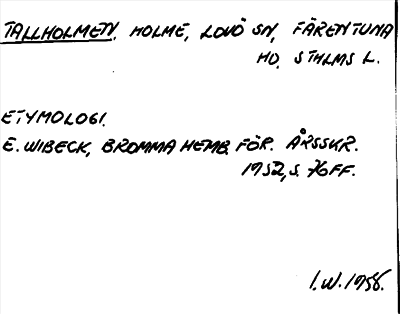 TALLHOLMEN. HOLME, LOVÖ SN, FÄRENTUNA
HD, STHLMS L.
ETYMOLOGI.
E. WIBECK, BROMMA HEMB. FÖR. ÅRSSKR.
1952, S. 76FF.
I.W. 1958.